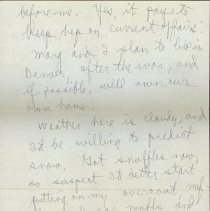 before me. Yes it pays to
keep hep on 'current affairs'.
Mary and I plan to live in
Denver, after the war, and
if possible, we'll own our
own home.
Weather here is cloudy, and
I'd be willing to predict
snow. Got snuffles now,
so suspect I'd better start
putting on my overcoat, my
muffs and